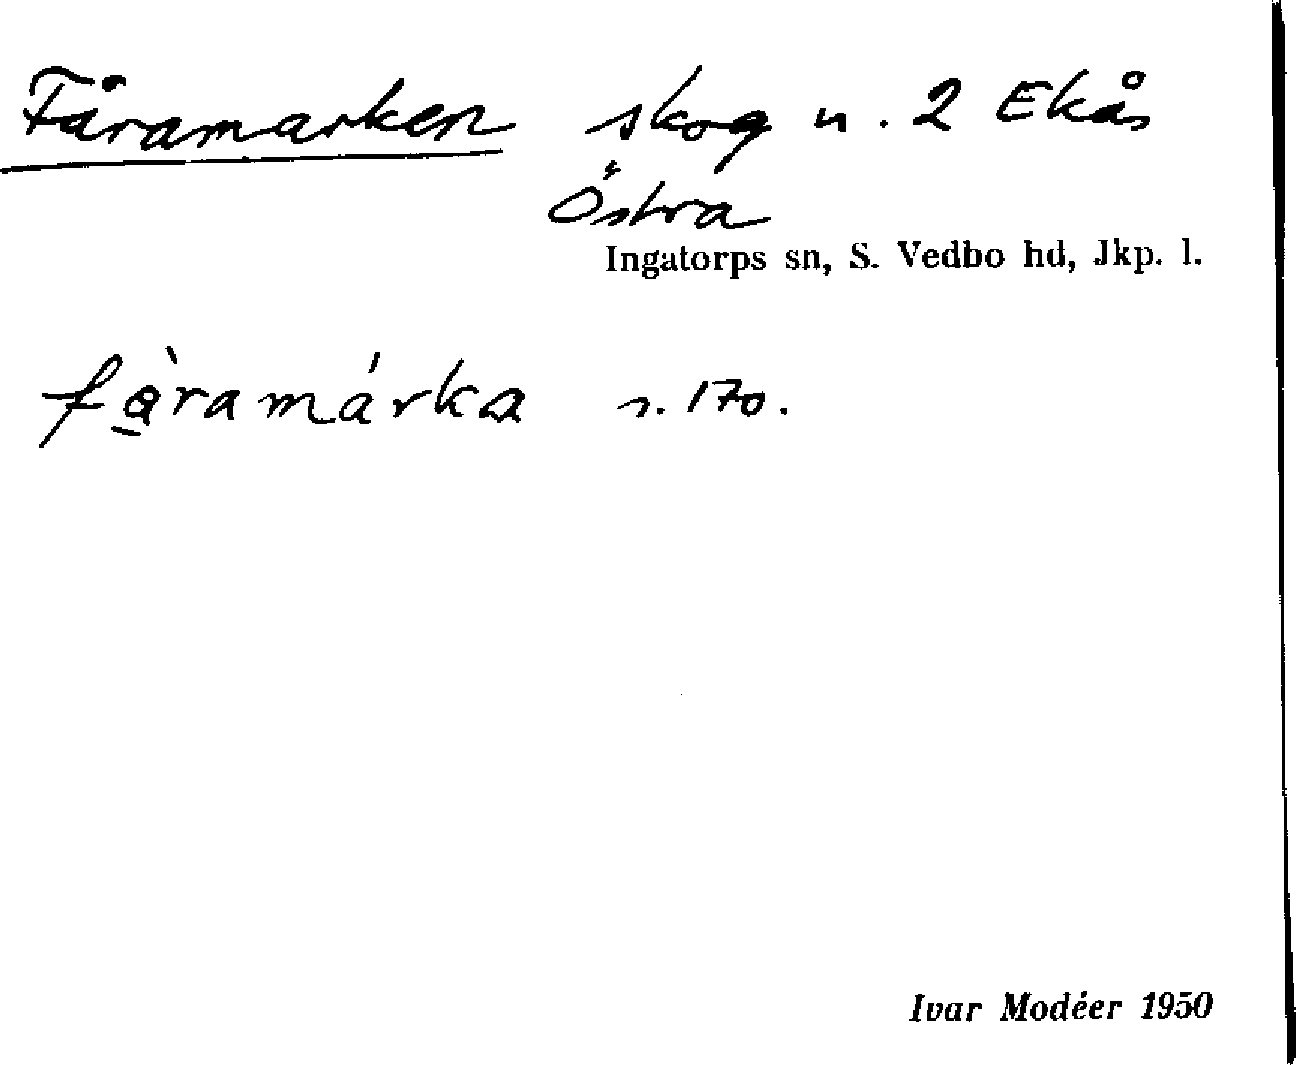 Fåramarken skog n. 2 Ekås
Östra
Ingatorps sn, S. Vedbo hd, Jkp. l.
fà̠ramárka s. 170.
Ivar Modéer 1950